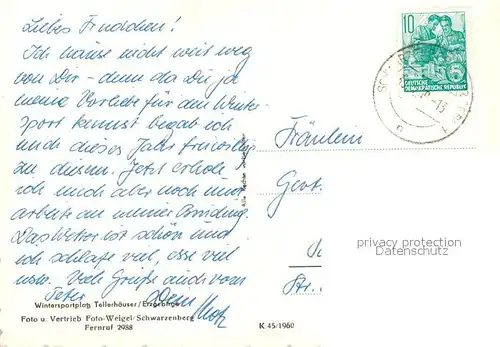 Liebes Frauchen!
Ich hause nicht weit weg
von Dir – denn da Du ja
meine Vorliebe für den Winter-
sport kennst begab ich
mich dieses Jahr freiwillig
zu diesem. Jetzt erhole
ich mich aber noch und
arbeite an meiner Bindung.
Das Wetter ist schön und
ich schlafe viel, esse viel
usw. Viele Grüße auch vom
Peter Dein
Wintersportplatz Tellerhäuser/Erzgebirge
Foto u. Vertrieb Foto-Weigel-Schwarzenberg
Fernruf 2988
K 45/1960
Alle Rechte
10
DEUTSCHE
DEMOKRATISCHE REPUBLIK
Fräulein
Gert
Str.
privacy protection
Datenschutz